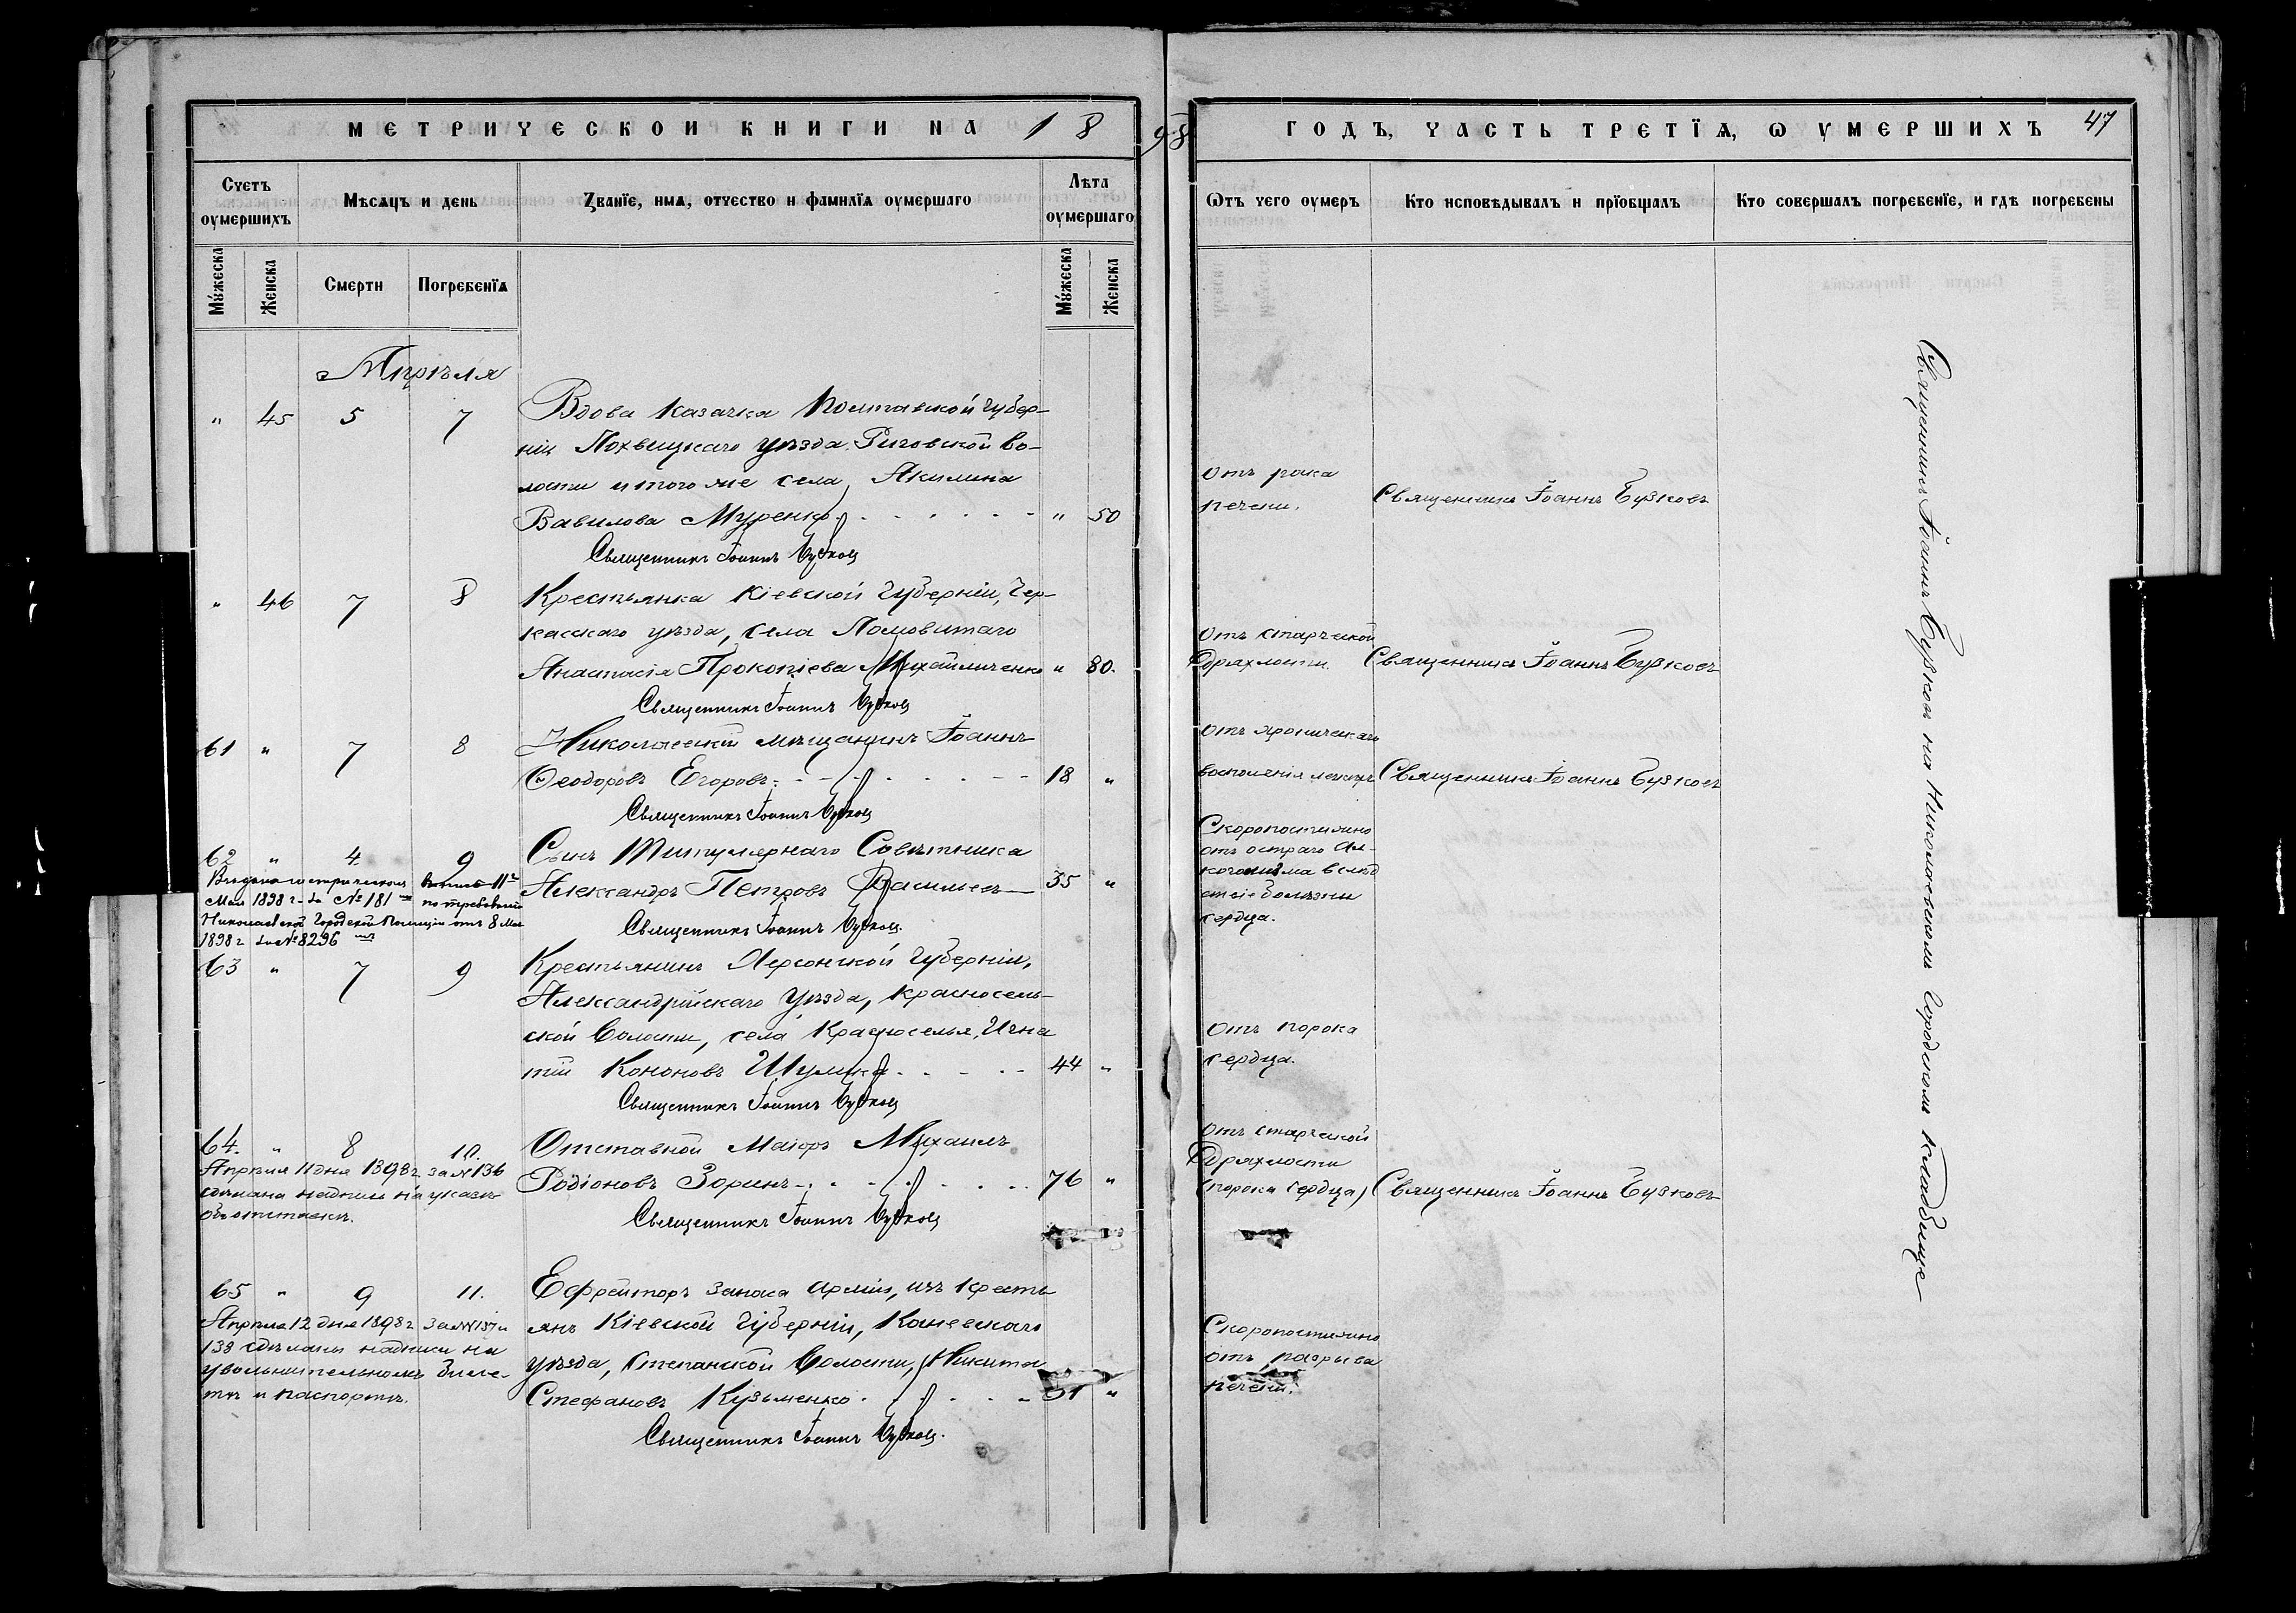 МЕТРИЧЕСКОЙ КНИГИ НА 1898
ГОДЪ, ЧАСТЬ ТРЕТІЯ, Ѡ УМЕРШИХЪ 47
Счетъ оумершихъ
Мѣсяцъ и день
Званїе, имя, отчество и фамилїя оумершаго
Лѣта оумершаго
Ѿтъ чего оумеръ
Кто исповѣдывалъ и прїобщалъ
Кто совершалъ погребенїе, и гдѣ погребены
Мужеска
Женска
Смерти
Погребенїя
Мужеска
Женска
Апрѣля
" 45 5 7 Вдова казачка Полтавской губер-
ніи Лохвицкаго уѣзда Риговской во-
лости и того же села, Акилина
Вавилова Муренко " 50
Отъ рака
печени.
Священникъ Іоаннъ Бузковъ
Священникъ Іоаннъ
" 46 7 8 Крестьянка Кіевской Губерніи, Чер-
касскаго уѣзда, села Ломоватаго
Анастасія Прокопіева Михайличенко " 80.
Отъ старческой
дряхлости.
Священникъ Іоаннъ Бузковъ
Священникъ Іоаннъ
61 " 7 8 Николаевскій мѣщанинъ Іоаннъ
Ѳеодоровъ Егоровъ 18 "
Отъ хроническаго
воспаленія легкихъ
Священникъ Іоаннъ Бузковъ
Священникъ Іоаннъ
62 " 4 9 Сынъ Титулярнаго Совѣтника
Александръ Петровъ Васильевъ 35 "
Мая 1898 г. за № 181 по требованію
Николаевской Городской Полиціи отъ 8 Мая
1898 г. за № 8296
Скоропостижно
отъ остраго ал-
коголизма вслѣд
ствіе болѣзни
сердца.
Священникъ Іоаннъ
63 " 7 9 Крестьянинъ Херсонской Губерніи,
Александрійскаго Уѣзда, Красносель-
ской Волости, села Красноселья, Игна
тій Кононовъ Шулика 44 "
Отъ порока
сердца.
Священникъ Іоаннъ
64. " 8 10. Отставной Маіоръ Михаилъ
Родіоновъ Зоринъ 76 "
Апрѣля 11 дня 1898 г. за № 136
сдѣлана надпись на указѣ
объ отставкѣ.
Отъ старческой
дряхлости
(порока сердца)
Священникъ Іоаннъ Бузковъ
Священникъ Іоаннъ
65 " 9 11. Ефрейторъ запаса арміи, изъ кресть
янъ Кіевской Губерніи, Каневскаго
уѣзда, Степанской Волости, Никита
Стефановъ Кузьменко 31 "
Апрѣля 12 дня 1898 г. за №№ 137 и
138 сдѣланы надписи на
увольнительномъ биле-
тѣ и паспортѣ.
Скоропостижно
отъ разрыва
печени.
Священникъ Іоаннъ
Священникъ Іоаннъ Бузковъ на Николаевскомъ городскомъ кладбище